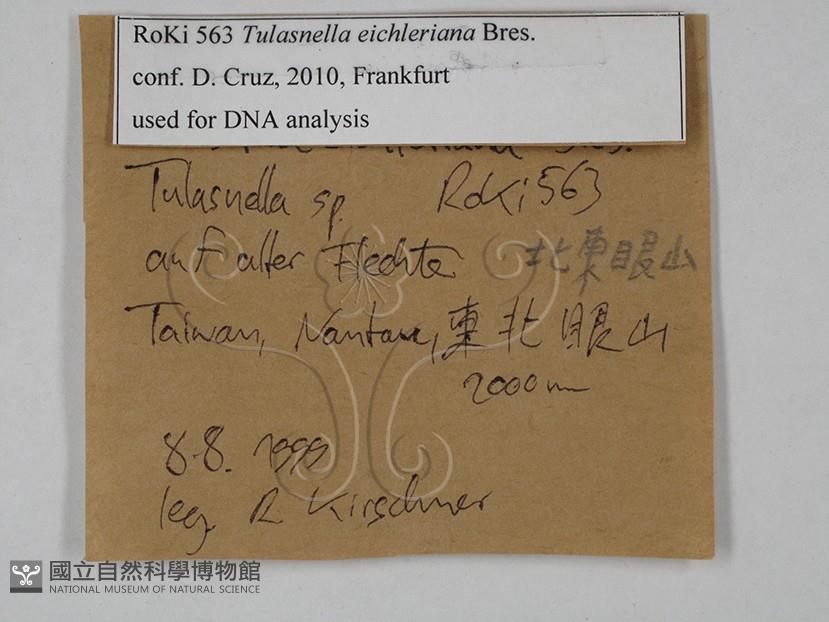 RoKi 563 Tulasnella eichleriana Bres.
conf. D. Cruz, 2010, Frankfurt
used for DNA analysis
Tulasnella sp. RoKi563
auf alter Flechte
北東眼山
Taiwan, Nantou, 東北眼山
2000m
8.8. 1999
leg. R. Kirschner
國立自然科學博物館
NATIONAL MUSEUM OF NATURAL SCIENCE